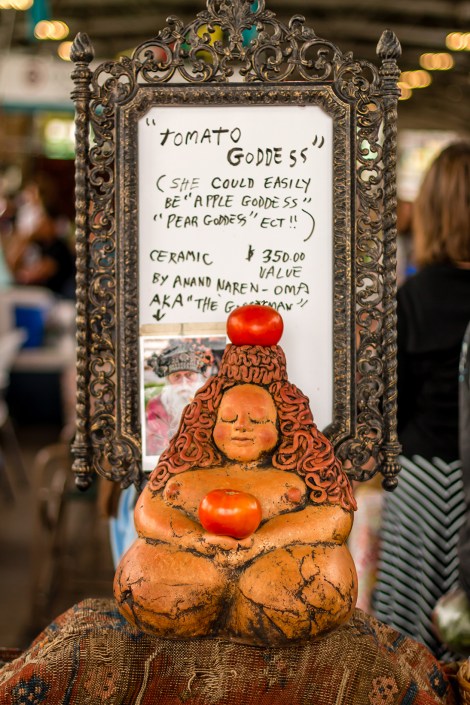 "TOMATO
GODDESS"
(SHE COULD EASILY
BE "APPLE GODDESS"
"PEAR GODDESS" ECT!!)
CERAMIC $350.00
VALUE
BY ANAND NAREN-OMA
AKA "THE